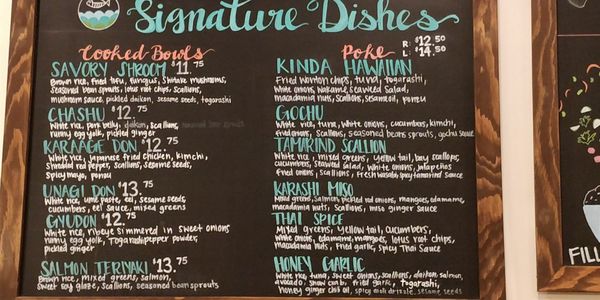 Signature Dishes
Cooked Bowls
SAVORY SHROOM $11.75
Brown rice, fried tofu, fungus, Shiitake mushrooms,
seasoned bean sprouts, lotus root chips, scallions,
mushroom sauce, pickled daikon, sesame seeds, togarashi
CHASHU $12.75
White rice, pork belly, daikon, scallions, seasoned bean sprouts
runny egg yolk, pickled ginger
KARAAGE DON $12.75
White rice, Japanese fried chicken, kimchi,
Shredded red pepper, scallions, sesame seeds,
Spicy mayo, ponzu
UNAGI DON $13.75
White rice, ume paste, eel, sesame seeds,
cucumbers, eel sauce, mixed greens
GYUDON $12.75
White rice, ribeye simmered in sweet onions
runny egg yolk, Togarashi pepper powder,
pickled ginger
SALMON TERIYAKI $13.75
Brown rice, mixed greens, salmon,
Sweet soy glaze, scallions, seasoned bean sprouts
Poke R: $12.50
L: $14.50
KINDA HAWAIIAN
Fried wonton chips, tuna, togarashi,
White onions, Wakame, seaweed Salad,
macadamia nuts, scallions, sesame oil, ponzu
GOCHU
White rice, tuna, white onions, cucumbers, kimchi,
fried onions, scallions, seasoned beans sprouts, gochu sauce
TAMARIND SCALLION
White rice, mixed greens, yellow tail, bay scallops,
cucumbers, seaweed salad, white onions, Jalapeños
fried onions, scallions, tamarind scallion
KARASHI MISO
Mixed greens, Salmon, pickled red onions, mangoes, edamame,
macadamia nuts, scallions, miso ginger sauce
THAI SPICE
Mixed greens, yellow tail, cucumbers,
White onions, edamame, mangoes, lotus root chips,
Macadamia nuts, fried garlic, Spicy Thai Sauce
HONEY GARLIC
White rice, tuna, sweet onions, scallions, daikon, salmon,
avocado, snow crab, fried garlic, togarashi,
honey ginger chili oil, spicy aioli drizzle, sesame seeds
FILL